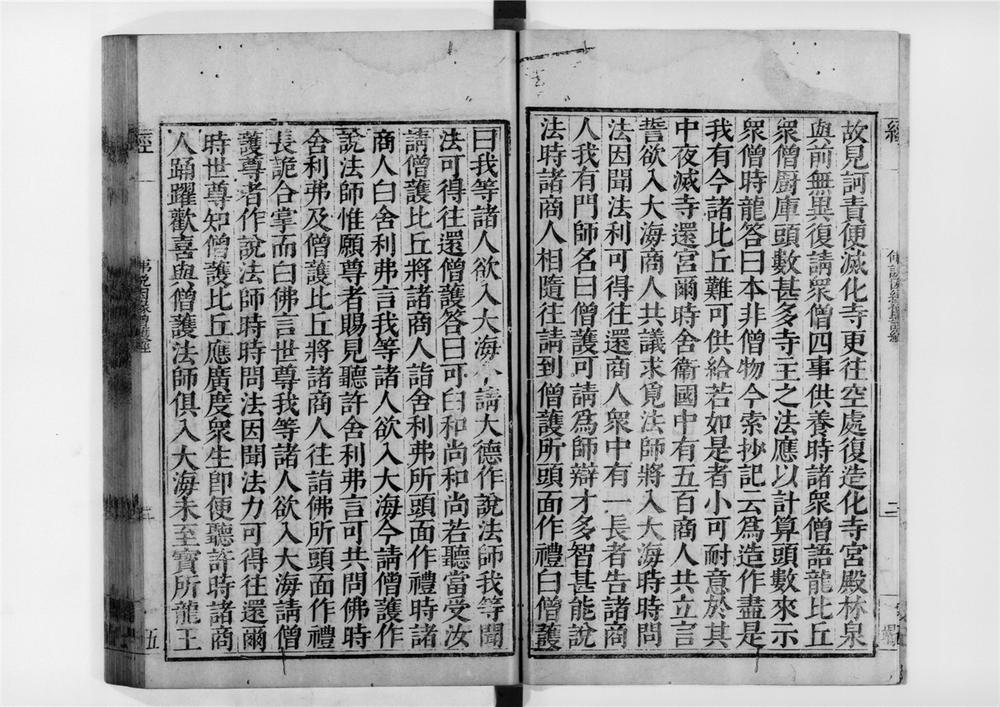 故見訶責便滅化寺更往空處復造化寺宮殿林泉
與前無異復請衆僧四事供養時諸衆僧語龍比丘
衆僧厨庫頭數甚多寺主之法應以計算頭數來示
衆僧時龍答曰本非僧物今索抄記云爲造作盡是
我有今諸比丘難可供給若如是者小可耐意於其
中夜滅寺還宮爾時舍衛國中有五百商人共立言
誓欲入大海商人共議求覓法師將入大海時時問
法因聞法利可得往還商人衆中有一長者告諸商
人我有門師名曰僧護可請爲師辯才多智甚能說
法時諸商人相隨往請到僧護所頭面作禮白僧護
曰我等諸人欲入大海今請大德作說法師我等聞
法可得往還僧護答曰可白和尚和尚若聽當受汝
請僧護比丘將諸商人詣舍利弗所頭面作禮時諸
商人白舍利弗言我等諸人欲入大海今請僧護作
說法師惟願尊者賜見聽許舍利弗言可共問佛時
舍利弗及僧護比丘將諸商人往詣佛所頭面作禮
長跪合掌而白佛言世尊我等諸人欲入大海請僧
護尊者作說法師時時問法因聞法力可得往還爾
時世尊知僧護比丘應廣度衆生即便聽許時諸商
人踊躍歡喜與僧護法師俱入大海未至寳所龍王
經
五